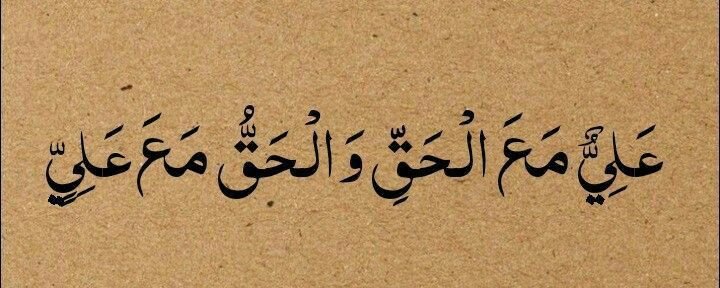 عَلِيٌّ مَعَ الْحَقِّ وَالْحَقُّ مَعَ عَلِيٍّ